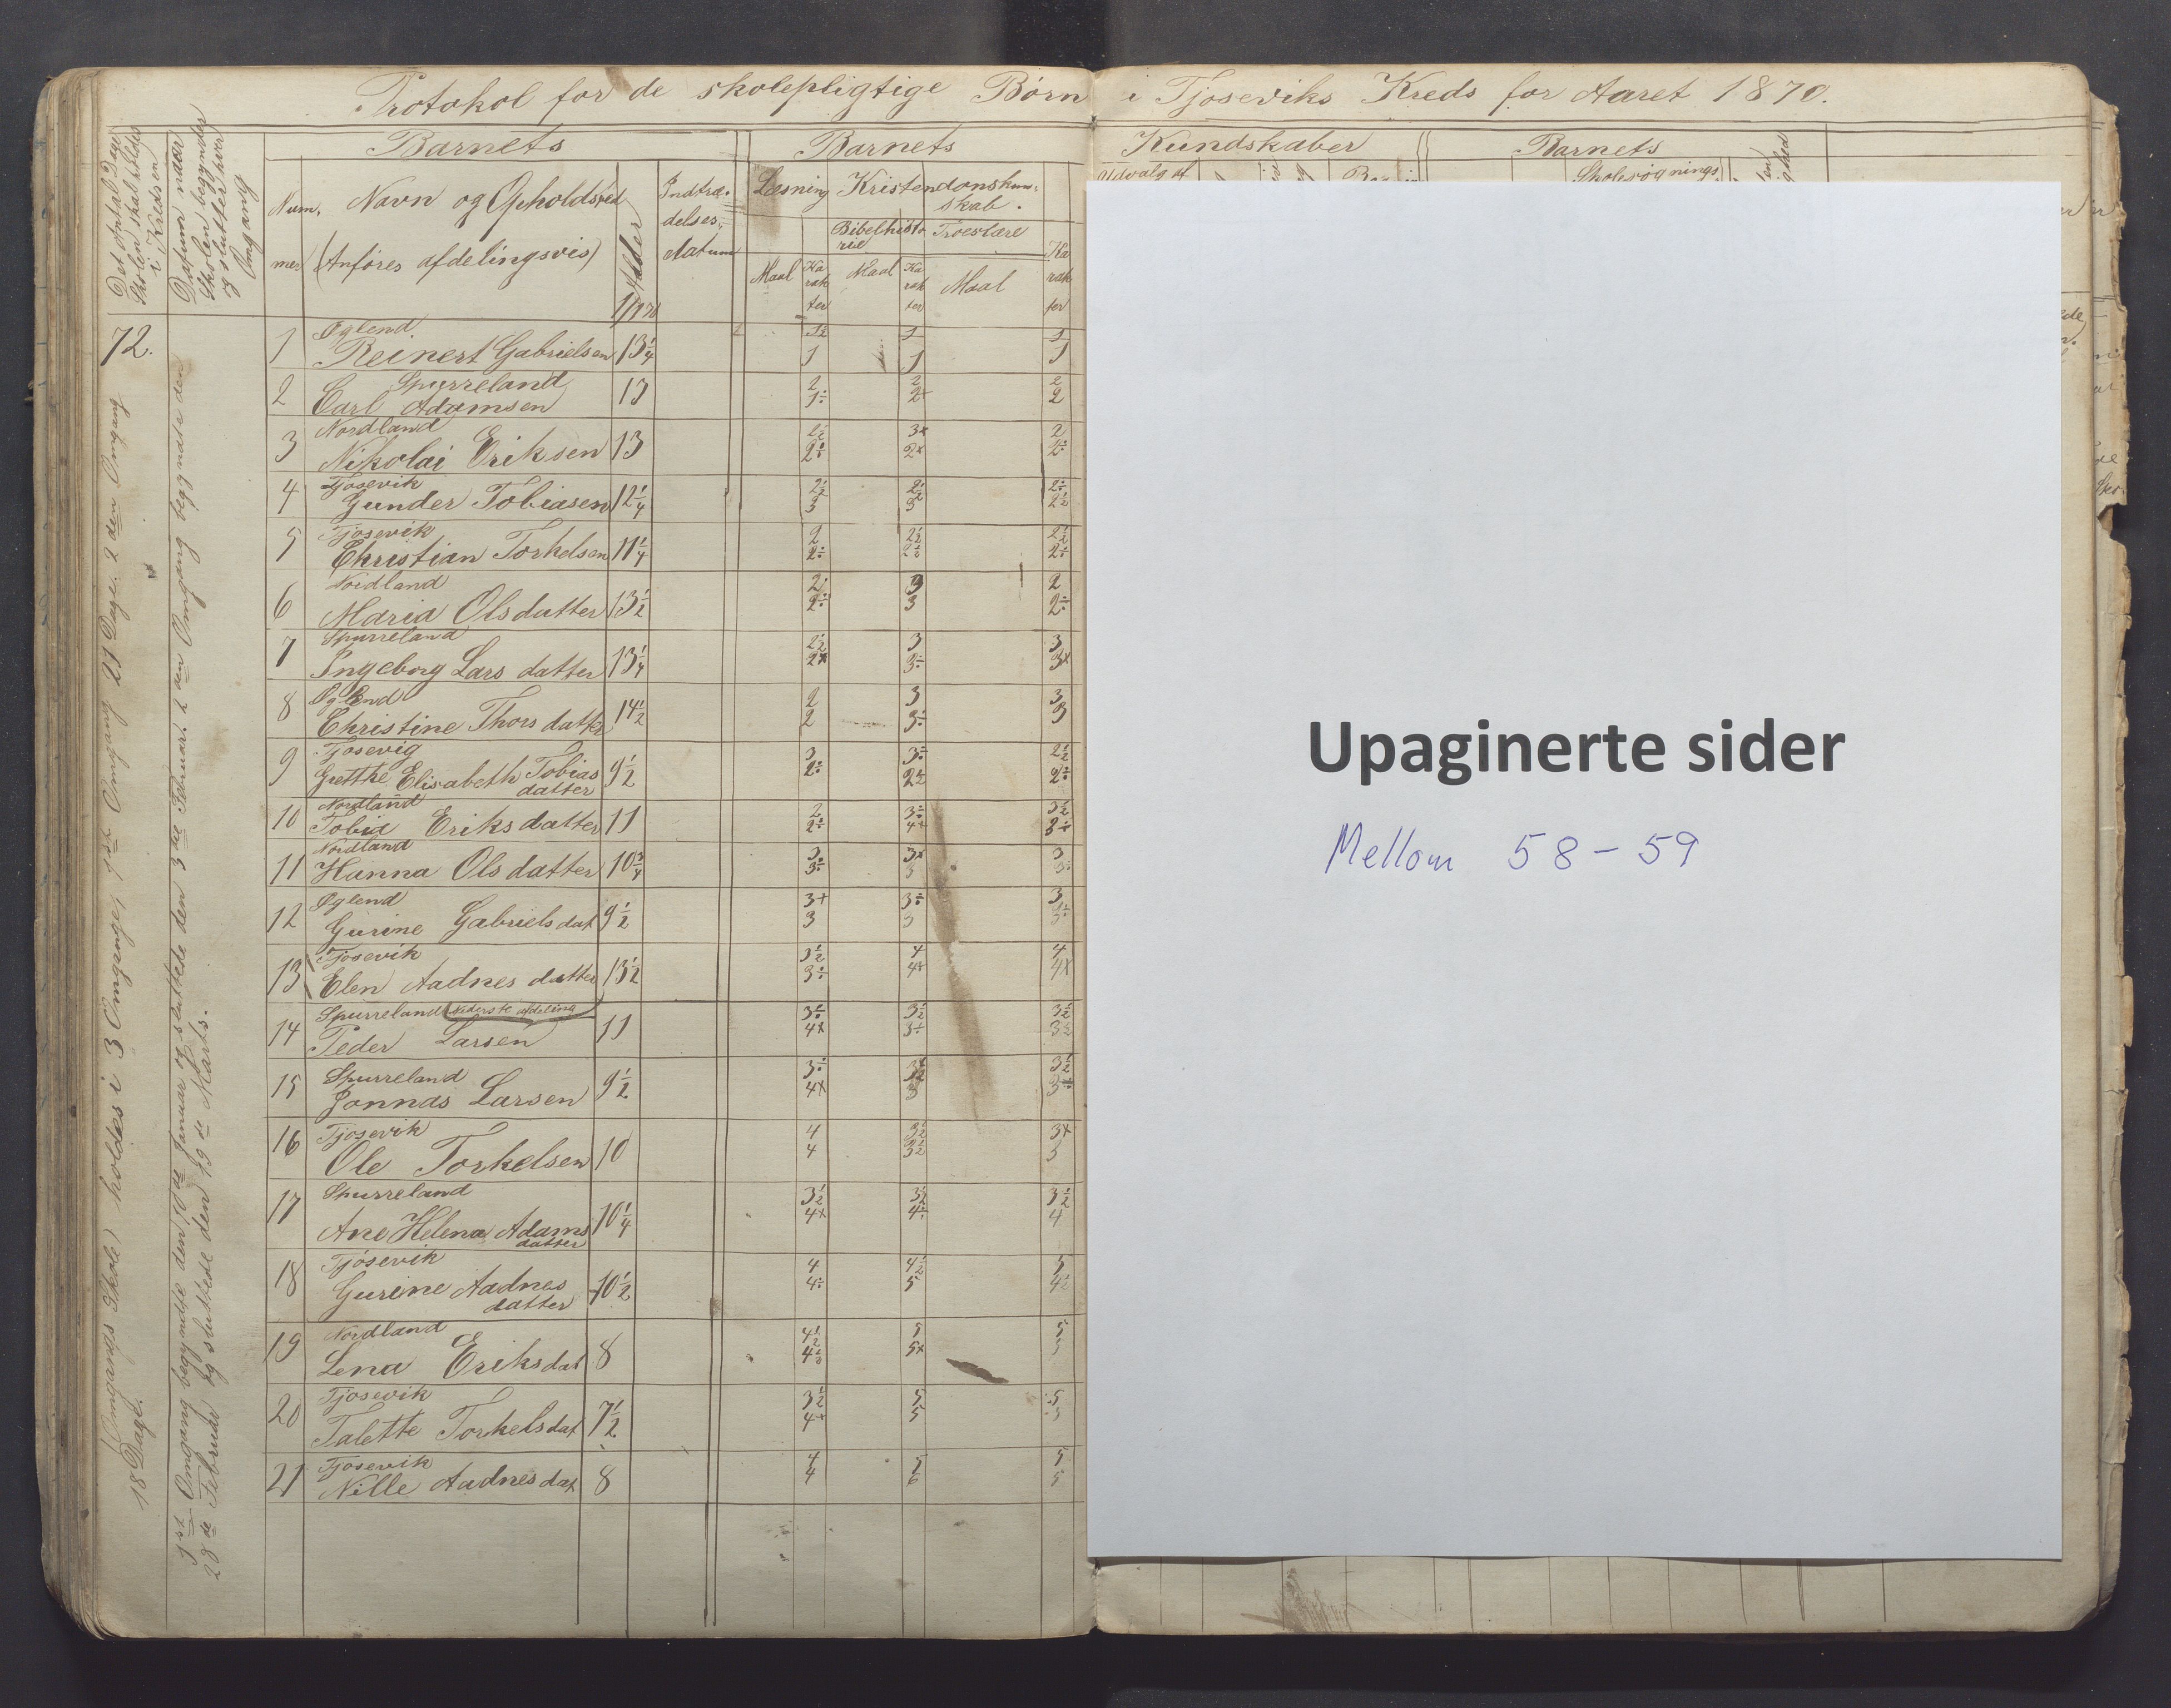 Protokol for de skolepligtige Børn i Tjoseviks Kreds for Aaret 1870.
Det Antal Dage
Skolen skal holdes
i Kredsen
Datum naar
Skolen begynder
og slutter hver
Omgang
Barnets
Num.
mer
Navn og Opholdsted
(Anføres afdelingsvis)
Alder
Indtræ-
delses-
datum
Barnets
Læsning
Kristendomskun-
skab.
Bibelhisto
rie
Troeslære
Maal
Ka
rak
ter
Maal
Ka
rak
ter
Maal
Ka
rak
ter
Kundskaber
Udvalg af
Barnets
Skolesøgnings
72.
(Omgangs Skole) holdes i 3 Omgange, 1ste Omgang 21 Dage. 2den Omgang
18 Dage.
1ste Omgang begyndte den 10de Januar og sluttede den 3de Februar. 2den Omgang begyndte den
28de Februar og sluttede den 19de Marts.
1 Øglend
Reinert Gabrielsen 13 1/4 1 1 1
2 Spurreland
Carl Adamsen 13 2 2 2
1÷ 2+ 2
3 Nordland
Nikolai Eriksen 13 2 1/2 3+ 2
2÷ 2+ 2÷
4 Tjosevik
Gunder Tobiasen 12 1/4 2 1/2 2 1/2 2÷
3 3 2 1/2
5 Tjosevik
Christian Torkelsen 11 1/4 2 2 1/2 2 1/2
2÷ 2÷ 2÷
6 Nordland
Maria Olsdatter 13 1/2 2 3 2
2÷ 3 2÷
7 Spurreland
Ingeborg Larsdatter 13 1/4 2 1/2 3 3
2+ 3÷ 3+
8 Øglend
Christine Thorsdatter 14 1/2 2 3 3
2 3÷ 3
9 Tjosevig
Grethe Elisabeth Tobias
datter 9 1/2 3 3÷ 2 1/2
2÷ 2 1/2 2÷
10 Nordland
Tobia Eriksdatter 11 2 3÷ 3 1/2
2÷ 4+ 3÷
11 Nordland
Hanna Olsdatter 10 3/4 3 3+ 3
3÷ 3 3÷
12 Øglend
Gurine Gabrielsdat 9 1/2 3+ 3÷ 3
3 3 3÷
13 Tjosevik
Elen Aadnesdatter 13 1/2 3 1/2 4 4
3÷ 4+ 4+
14 Spurreland (Nederste afdeling
Peder Larsen 11 3÷ 3 1/2 3 1/2
4+ 3÷ 3 1/2
15 Spurreland
Jonnas Larsen 9 1/2 3÷ 3 1/2 3 1/2
4+ 3 3÷
16 Tjosevik
Ole Torkelsen 10 4 3 1/2 3+
4 3 1/2 3
17 Spurreland
Ane Helena Adams
datter 10 1/4 3 1/2 3 1/2 3 1/2
4+ 4÷ 4
18 Tjosevik
Gurine Aadnes
datter 10 1/2 4 4 1/2 5
4÷ 5 4 1/2
19 Nordland
Lena Eriksdat 8 4 1/2 5 5
4÷ 5+ 5
20 Tjosevik
Talette Torkelsdat 7 1/2 3 1/2 5 5
4+ 5 5
21 Tjosevik
Nille Aadnesdat 8 4 5 5
4 6 5
Upaginerte sider
Mellom 58-59